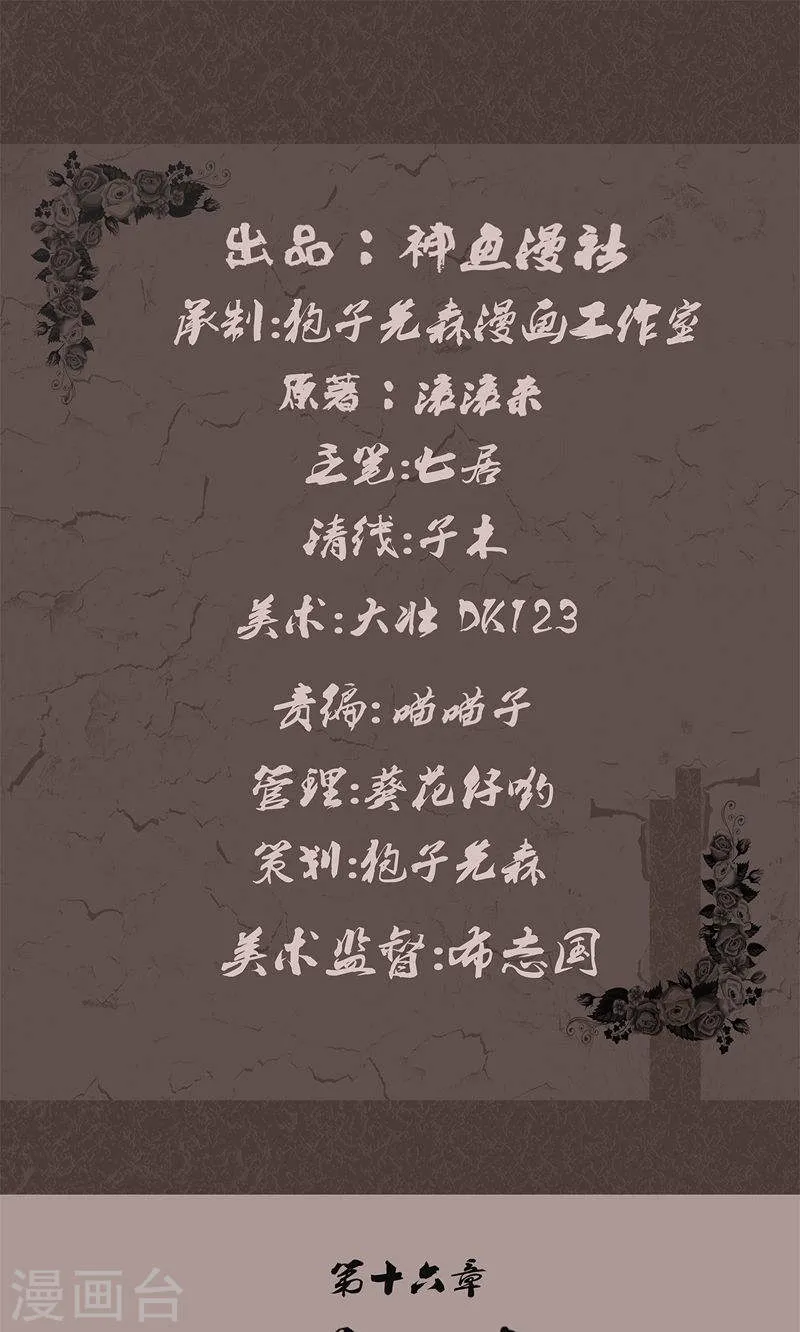 出品：神鱼漫社
承制:狍子先森漫画工作室
原著：滚滚来
主笔:七居
清线:子木
美术:大壮 DK123
责编:喵喵子
管理:葵花仔哟
策划:狍子先森
美术监督:布志国
第十六章
漫画台